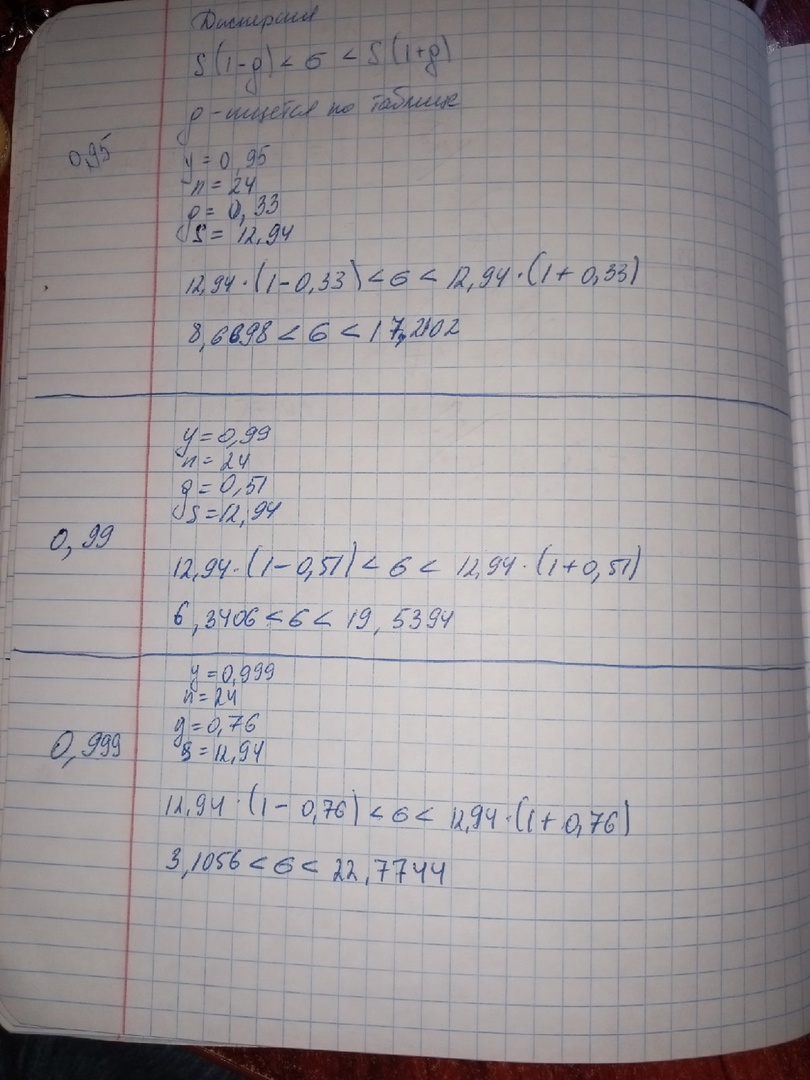 Дисперсия
S(1-q) < б < S(1+q)
q - ищется по таблице
0,95
y = 0,95
n = 24
q = 0,33
S = 12,94
12,94·(1-0,33) < б < 12,94·(1+0,33)
8,6698 < б < 17,2102
y = 0,99
n = 24
q = 0,51
S = 12,94
0,99
12,94·(1-0,51) < б < 12,94·(1+0,51)
6,3406 < б < 19,5394
y = 0,999
n = 24
q = 0,76
S = 12,94
0,999
12,94·(1-0,76) < б < 12,94·(1+0,76)
3,1056 < б < 22,7744